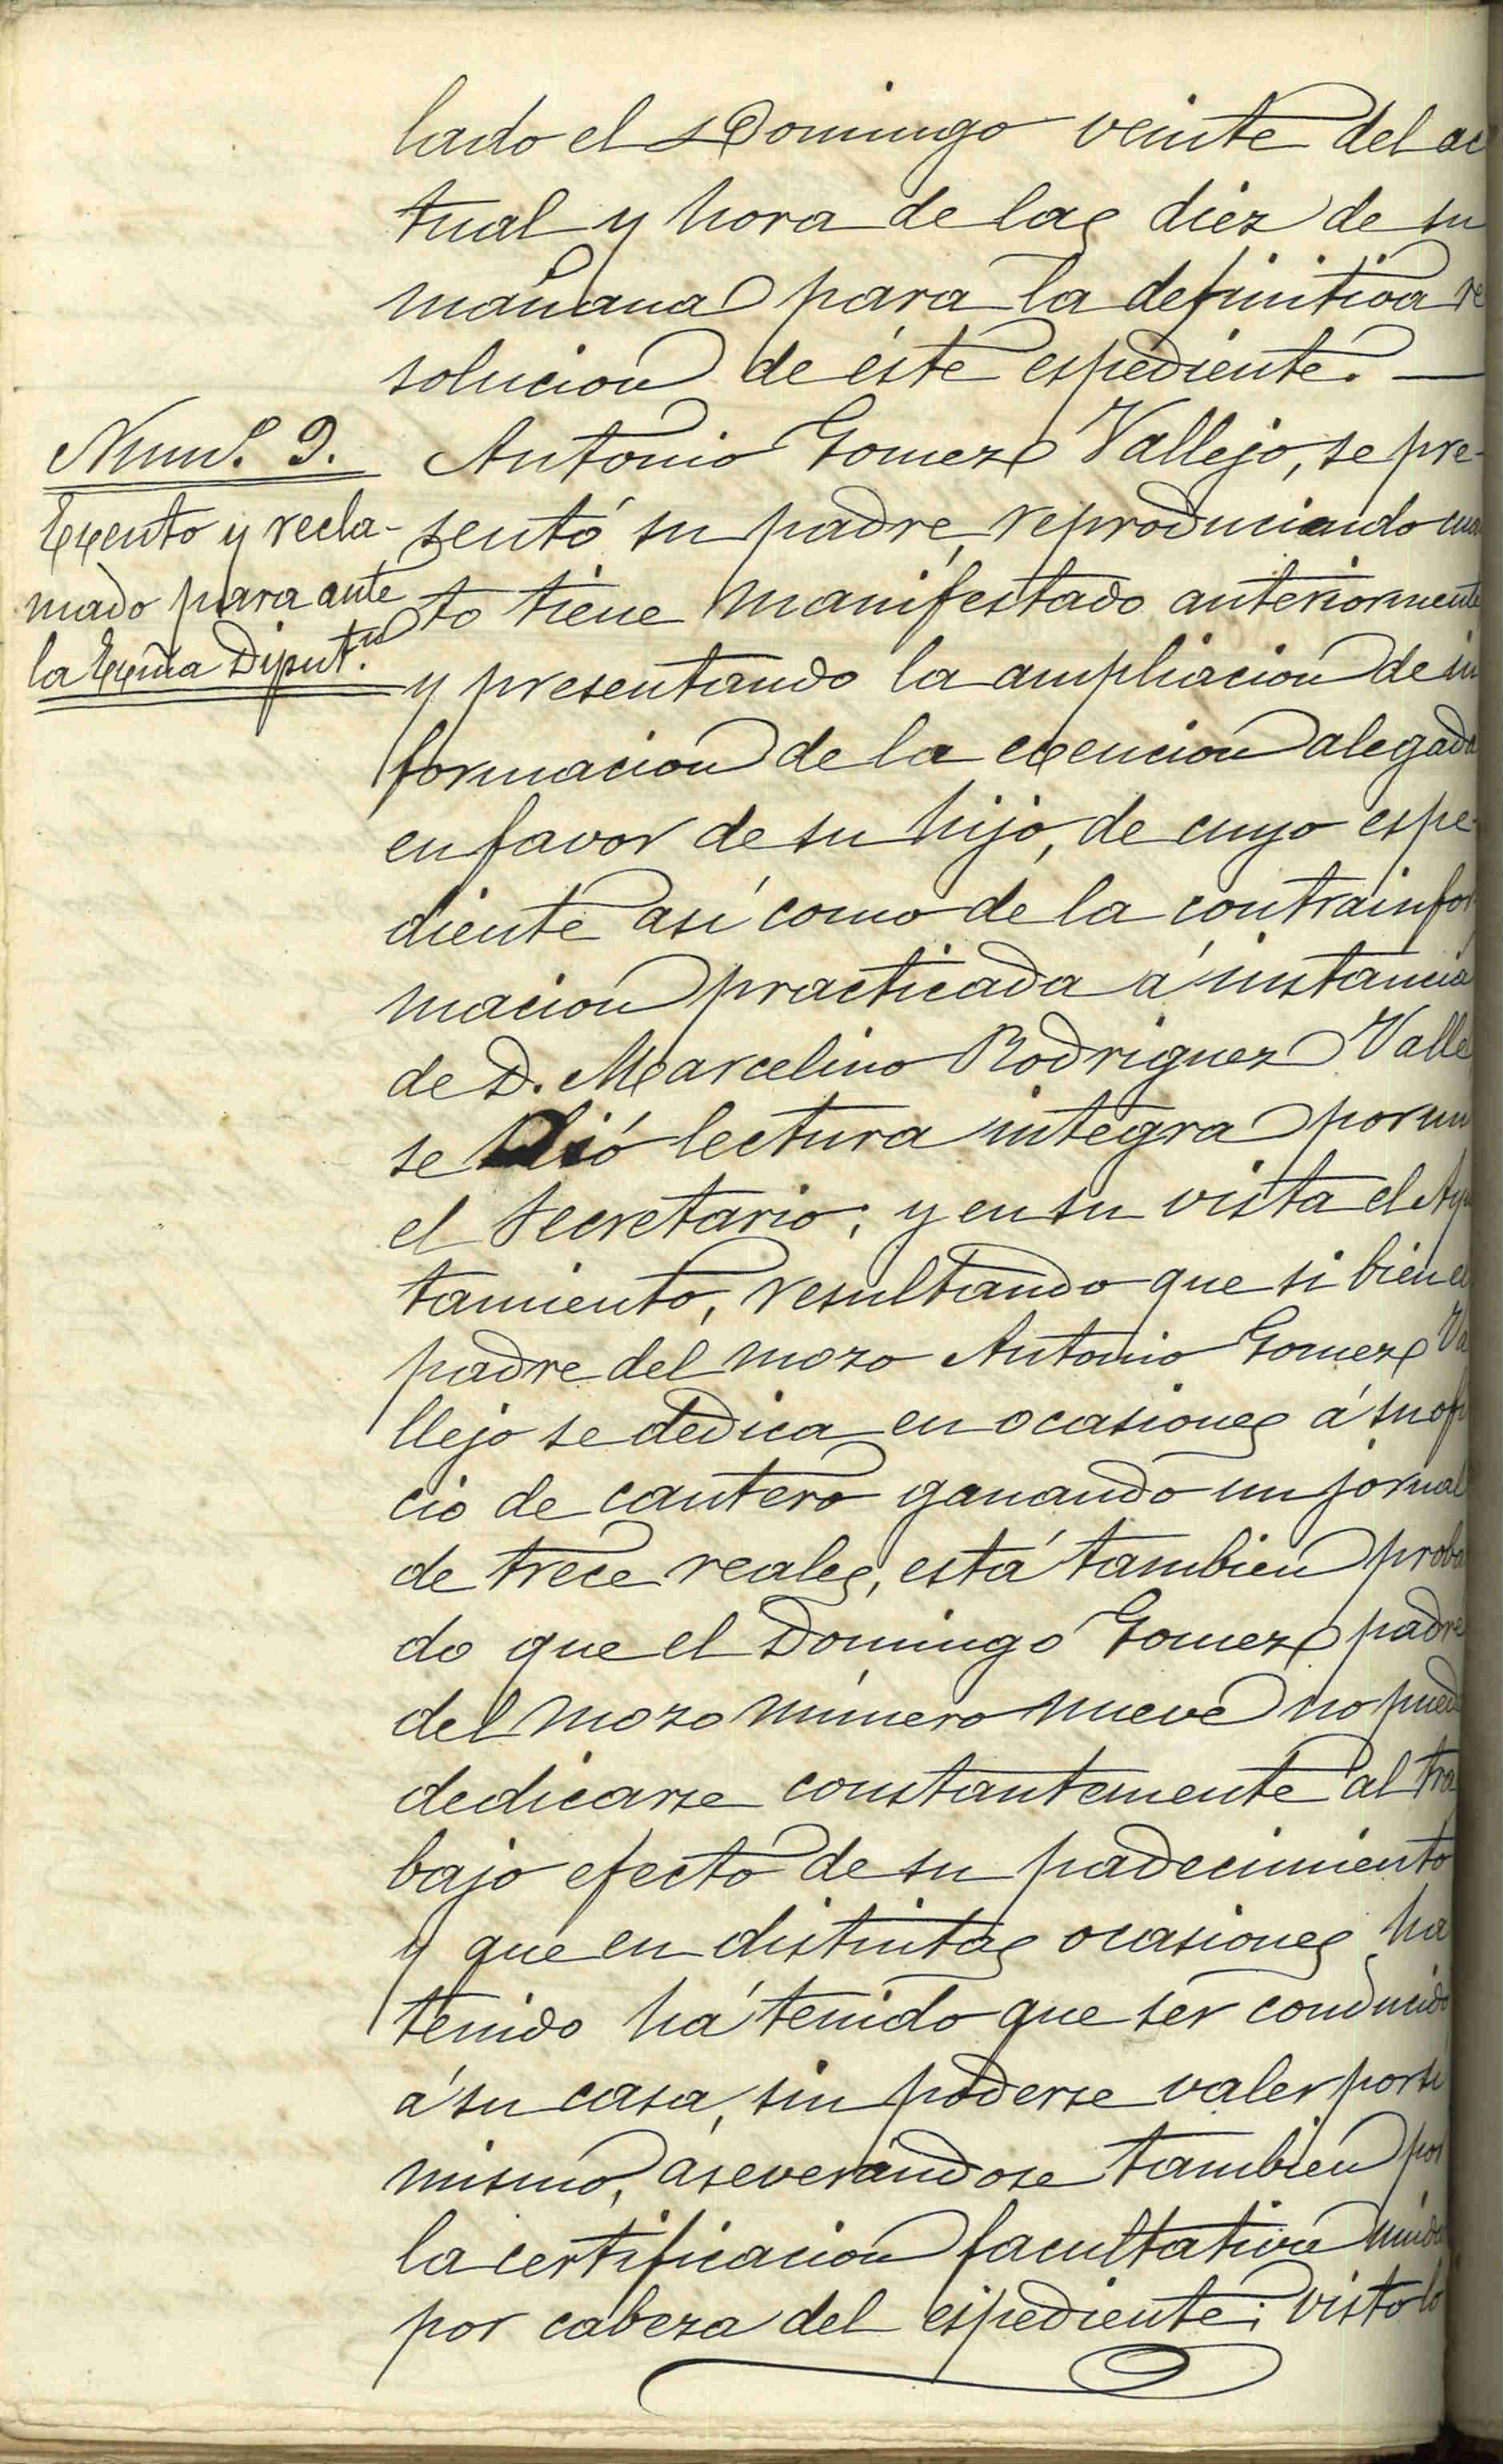 lado el Domingo veinte del ac
tual y hora de las diez de su
mañana para la definitiva re
solucion de éste espediente. —
Num.º 9.
Exento y recla-
mado para ante
la Exma Diput.n
Antonio Gomez Vallejo, se pre-
sentó su padre, reproduciendo cuan
to tiene manifestado anteriormente
y presentando la ampliacion de in
formacion de la exencion alegada
en favor de su hijo, de cuyo espe-
diente así como de la contrainfor
macion practicada á instancia
de D. Marcelino Rodriguez Valle
se dió lectura integra por mi
el Secretario; y en su vista el Ayun
tamiento, resultando que si bien el
padre del mozo Antonio Gomez Va
llejo se dedica en ocasiones á su ofi
cio de cantero ganando un jornal
de trece reales, está tambien proba
do que el Domingo Gomez padre
del mozo número nueve no puede
dedicarse constantemente al tra
bajo efecto de su padecimiento
y que en distintas ocasiones ha
tenido há tenido que ser conducido
á su casa, sin poderse valer por si
mismo, aseverándose tambien por
la certificacion facultativa unida
por cabeza del espediente; visto lo